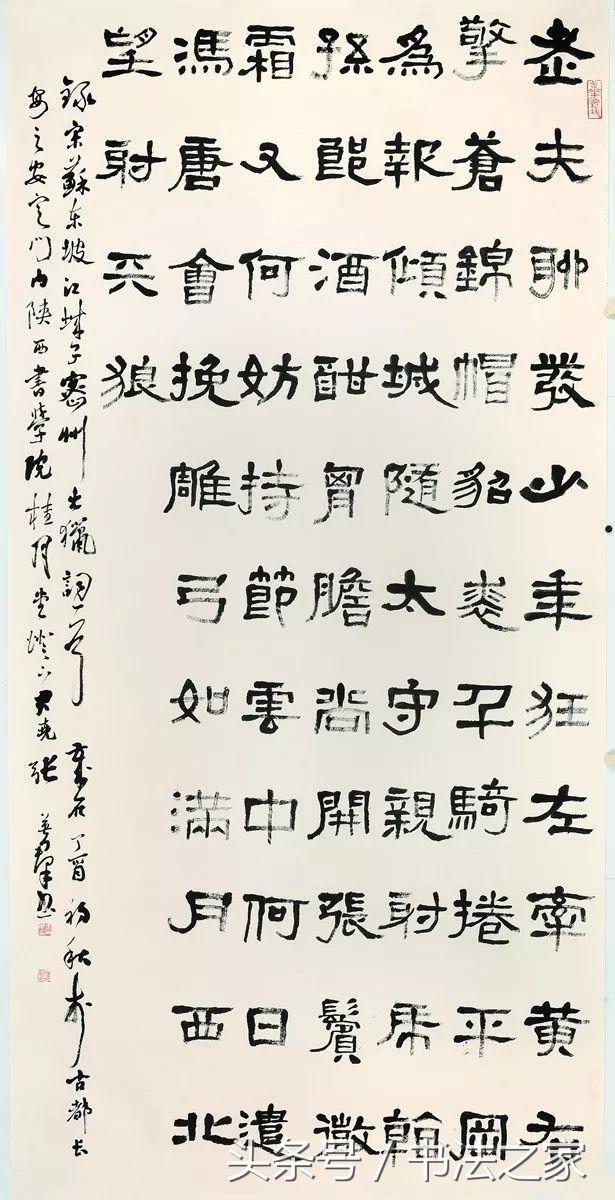 老夫聊發少年狂左牽黃右
擎蒼錦帽貂裘千騎捲平岡
為報傾城隨太守親射虎看
孫郎酒酣胸膽尚開張鬢微
霜又何妨持節雲中何日遣
馮唐會挽雕弓如滿月西北
望射天狼
錄宋蘇東坡江城子密州出獵詞一首 歲在丁酉初秋於古都長
安之安定門內陝西書學院桂月堂燈下 張
头条号 / 书法之家